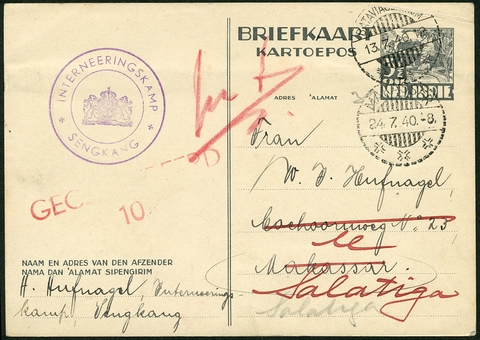 BRIEFKAART
KARTOEPOS
3½
NEDERL INDIE
13.7.40
24.7.40.-8.
INTERNEERINGSKAMP
* SENGKANG *
ADRES 'ALAMAT
Frau
W. D. Hufnagel,
No 23,
te
Makassar.
Salatiga
Salatiga
GEC D
10
NAAM EN ADRES VAN DEN AFZENDER
NAMA DAN 'ALAMAT SIPENGIRIM
H. Hufnagel, Interneerings-
kamp, Sengkang